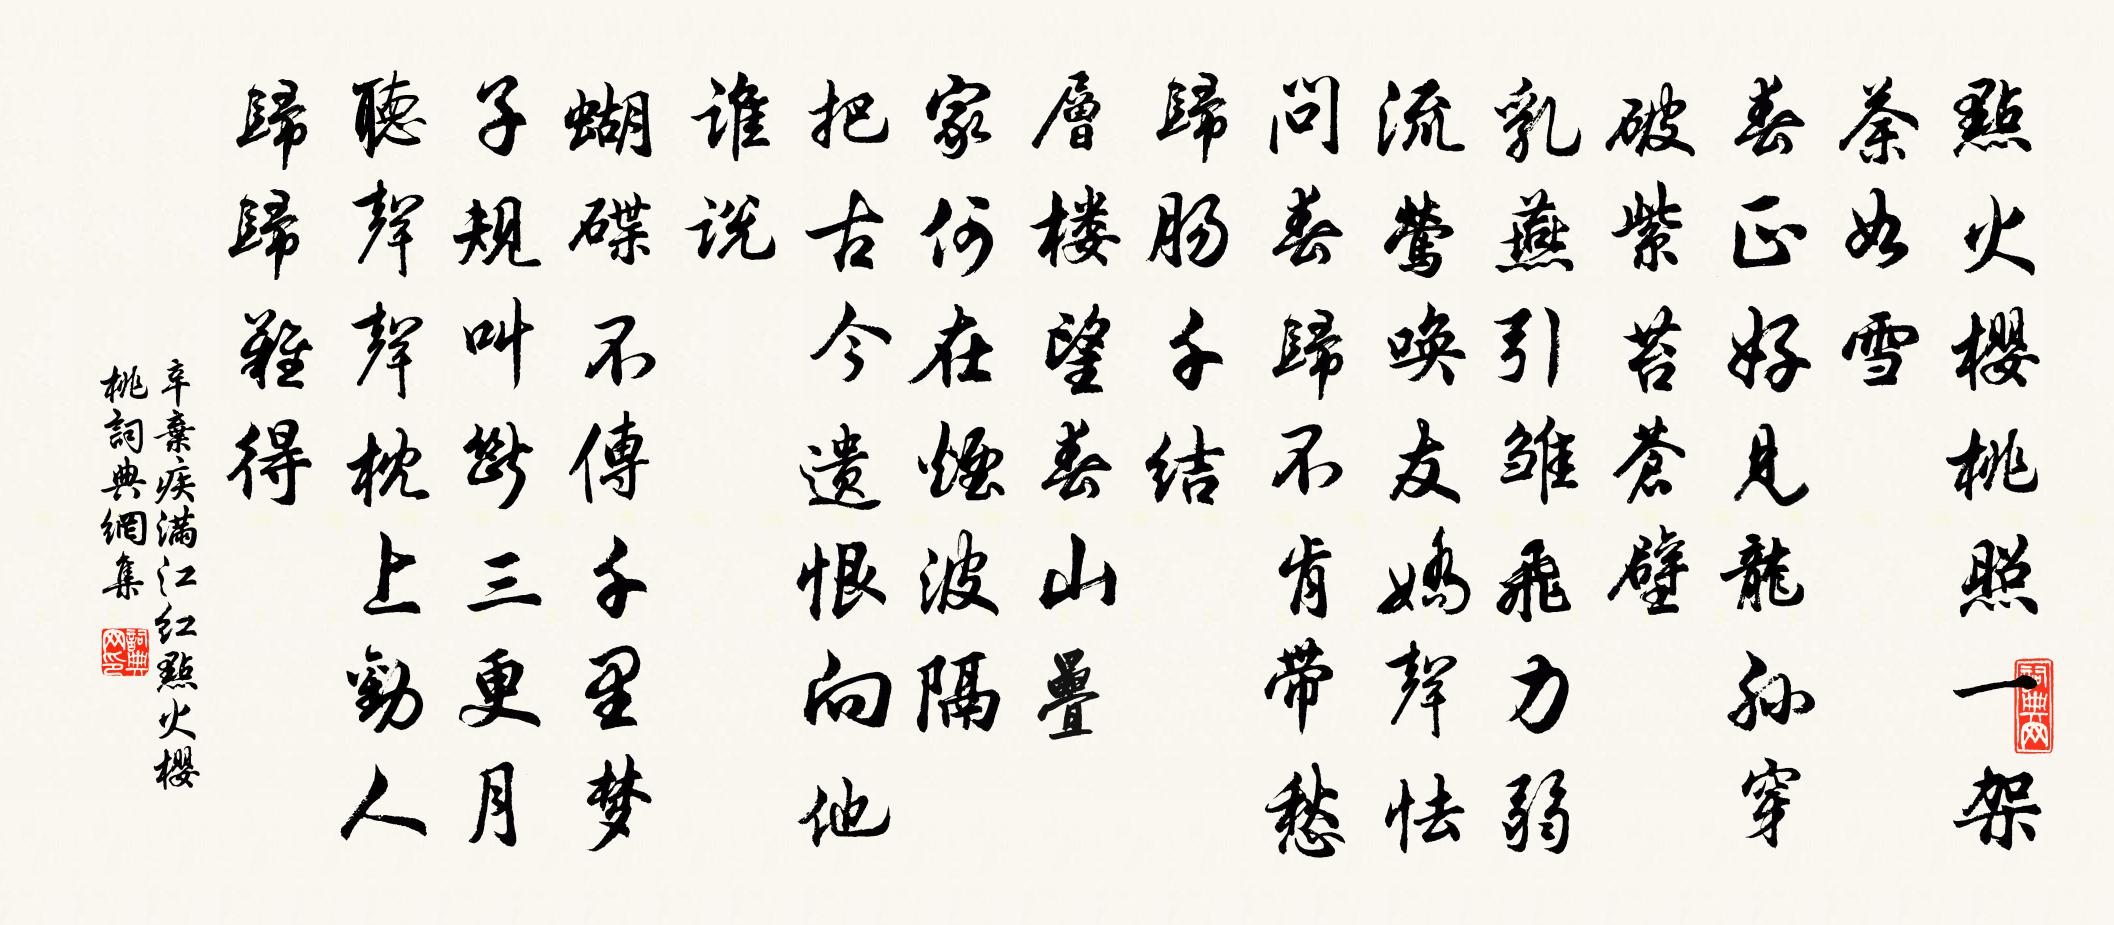 點火櫻桃照一架
荼如雪
春正好見龍孫穿
破紫苔蒼壁
乳燕引雏飛力弱
流鶯喚友嬌聲怯
問春歸不肯带愁
歸肠千结
層楼望春山疊
家何在烟波隔
把古今遗恨向他
谁说
蝴蝶不傳千里梦
子規叫斷三更月
聽聲聲枕上勸人
歸歸難得
辛棄疾满江红點火櫻
桃詞典網集
詞典网
詞典网印